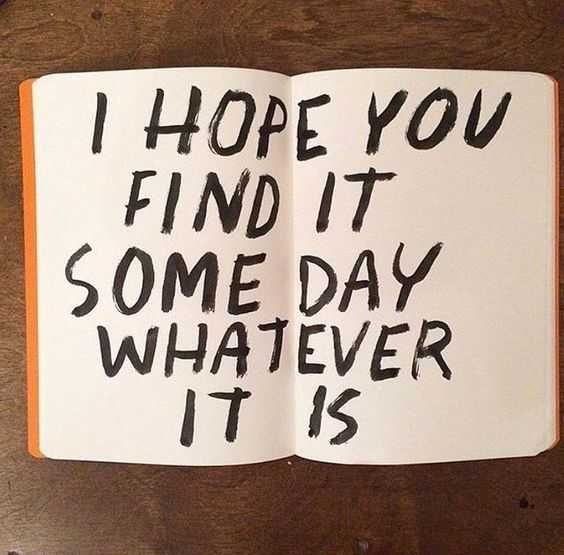 I HOPE YOU
FIND IT
SOME DAY
WHATEVER
IT IS